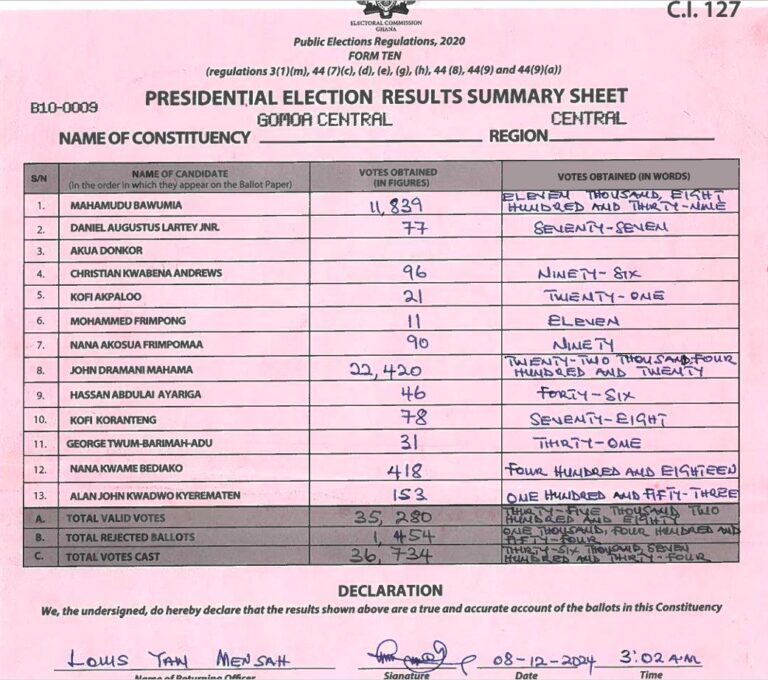 C.I. 127
ELECTORAL COMMISSION
GHANA
Public Elections Regulations, 2020
FORM TEN
(regulations 3(1)(m), 44 (7)(c), (d), (e), (g), (h), 44 (8), 44(9) and 44(9)(a))
B10-0009
PRESIDENTIAL ELECTION RESULTS SUMMARY SHEET
NAME OF CONSTITUENCY GOMOA CENTRAL REGION CENTRAL
S/N NAME OF CANDIDATE (In the order in which they appear on the Ballot Paper) VOTES OBTAINED (IN FIGURES) VOTES OBTAINED (IN WORDS)
1. MAHAMUDU BAWUMIA 11,839 ELEVEN THOUSAND, EIGHT HUNDRED AND THIRTY-NINE
2. DANIEL AUGUSTUS LARTEY JNR. 77 SEVENTY-SEVEN
3. AKUA DONKOR
4. CHRISTIAN KWABENA ANDREWS 96 NINETY-SIX
5. KOFI AKPALOO 21 TWENTY-ONE
6. MOHAMMED FRIMPONG 11 ELEVEN
7. NANA AKOSUA FRIMPOMAA 90 NINETY
8. JOHN DRAMANI MAHAMA 22,420 TWENTY-TWO THOUSAND, FOUR HUNDRED AND TWENTY
9. HASSAN ABDULAI AYARIGA 46 FORTY-SIX
10. KOFI KORANTENG 78 SEVENTY-EIGHT
11. GEORGE TWUM-BARIMAH-ADU 31 THIRTY-ONE
12. NANA KWAME BEDIAKO 418 FOUR HUNDRED AND EIGHTEEN
13. ALAN JOHN KWADWO KYEREMATEN 153 ONE HUNDRED AND FIFTY-THREE
A. TOTAL VALID VOTES 35,280 THIRTY-FIVE THOUSAND, TWO HUNDRED AND EIGHTY
B. TOTAL REJECTED BALLOTS 1,454 ONE THOUSAND, FOUR HUNDRED AND FIFTY-FOUR
C. TOTAL VOTES CAST 36,734 THIRTY-SIX THOUSAND, SEVEN HUNDRED AND THIRTY-FOUR
DECLARATION
We, the undersigned, do hereby declare that the results shown above are a true and accurate account of the ballots in this Constituency
LOUIS YAW MENSAH 08-12-2024 3:02 AM
Name of Returning Officer Signature Date Time